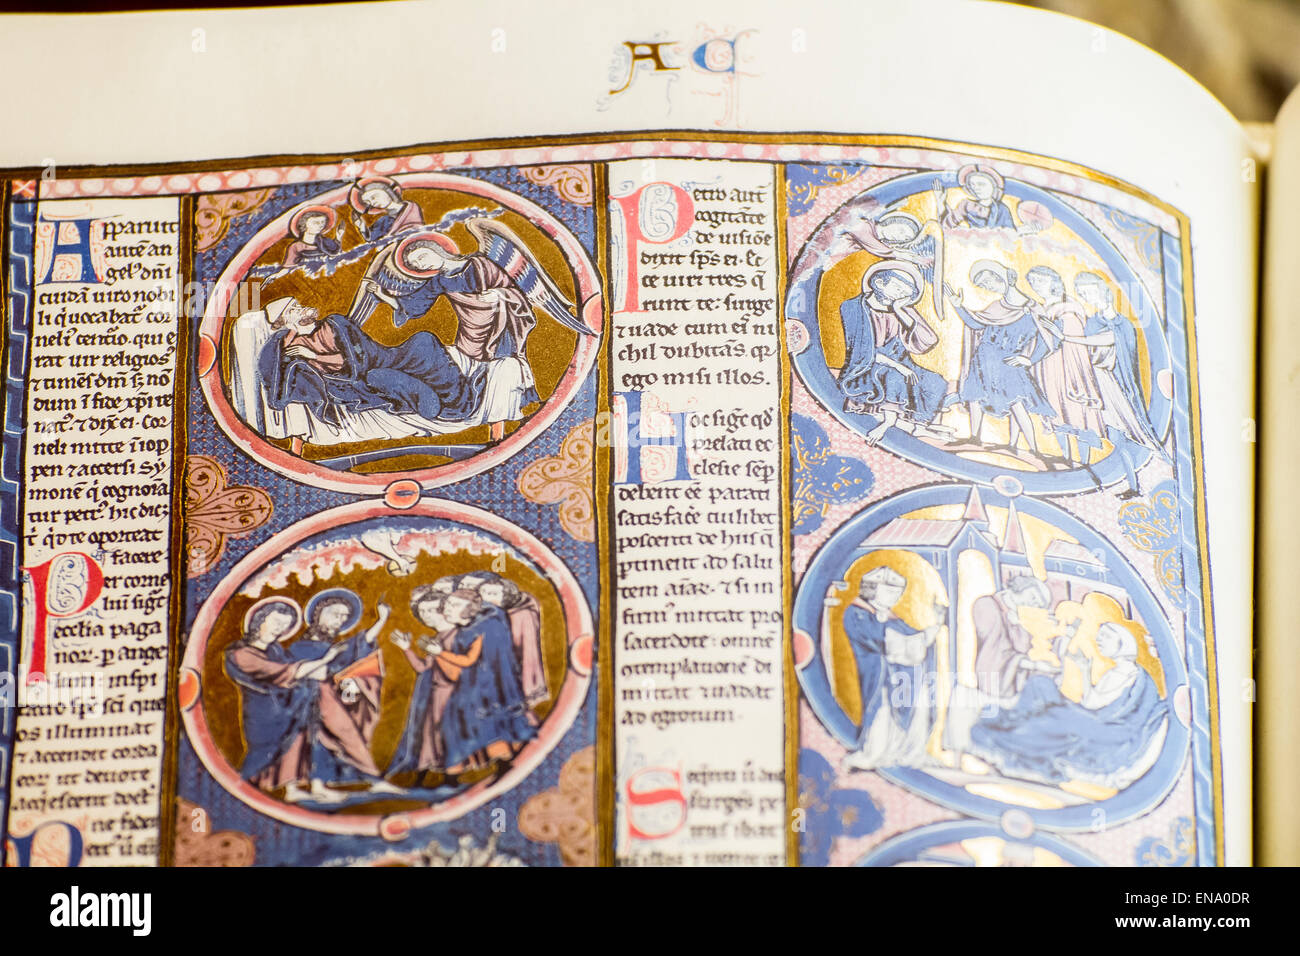 A C
Apparuit
autē an
gel' dm̄i
cuidā viro nobi
li q̇ vocabat̄ cor
neli' cenť'o. qui e
rat vir religios'
⁊ timēs dm̄. sȝ nō
dum ī fide xp̄i re
nat'. ⁊ dix̄ ei. Cor
neli mitte in iop
pen ⁊ accersi Sy
monem q̇ cognōīa
tur petr'. hic dicȝ
t' qd te oporteat
facere
Per corne
lium sigt'
ecclia paga
nor. p ange
lum inspi
ratio sp̄c scī
os illuminat
⁊ accendit corda
eor ut devote
Petro aut̄
cogitāte
de visiōe
dixit sp̄s ei. ec
ce viri tres q̄
runt te. surge
⁊ vade cum ei' ni
chil dubitans. qr
ego misi illos.
Hoc sigt' qd
prelati ec
clesie semp
debent eē parati
satisface cuilibet
poscenti de hiis q̄
ptinent ad salu
tem aīaȝ. ⁊ si in
firmi' mittat pro
sacerdote. omnē
ōtemplationē di
mittat ⁊ vadat
ad egrotum.
surgēs pe
alamy
alamy
Image ID: ENA0DR
www.alamy.com